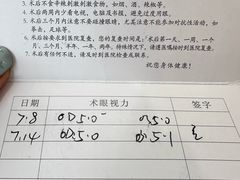 3. 术后不食辛辣刺激刺激食物，如烟、酒、辣椒等。
4. 术后两周内少看电视、电脑及书报，避免过度用眼。
5. 术后三个月内注意不要碰撞眼球，尤其注意不能参加对抗性活动，如拳击、足球等。
6. 术后按要求到医院复查，您的复查时间是：术后第一天、一周、一个月、三个月、半年、一年、两年。特殊情况下，请遵医嘱按时到医院复查。
7. 术后有任何不适，请及时到医院检查或联系。
祝您身体健康！
日期 术眼视力 签字
7.8 OD 5.0 OS 5.0
7.14 OD 5.0 OS 5.1